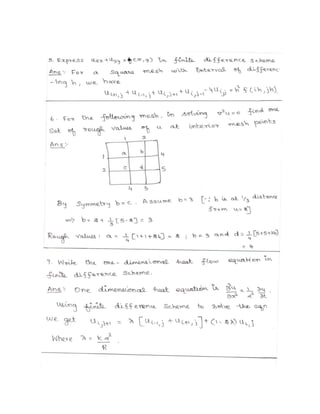 5. Express uxx + uyy = f(x, y) in finite difference scheme
Ans: For a square mesh with interval of differenc
-ing h, we have
u i+1,j + u i-1,j + u i,j+1 + u i,j-1 - 4u i,j = h² f(ih, jh)
6. For the following mesh, in solving ∇²u=0 find one
Set of rough values of u at interior mesh points
Ans:
1 2
1 a b 4
2 c d 5
4 5
By Symmetry b=c. Assume b=3 [∵ b is at 1/3 distance
from u=2]
⇒ b = 2 + 1/3 [5-2] = 3
Rough values: a = 1/4 [1+1+2b] = 2; b=3 and d = 1/4 [5+5+2b]
= 4
7. Write the one-dimensional heat flow equation in
finite difference scheme.
Ans: One dimensional heat equation is ∂²u/∂x² = 1/α² ∂u/∂t
Using finite difference scheme to solve the eqn
we get u i,j+1 = λ [u i-1,j + u i+1,j] + (1-2λ) u i,j
Where λ = kα²/h